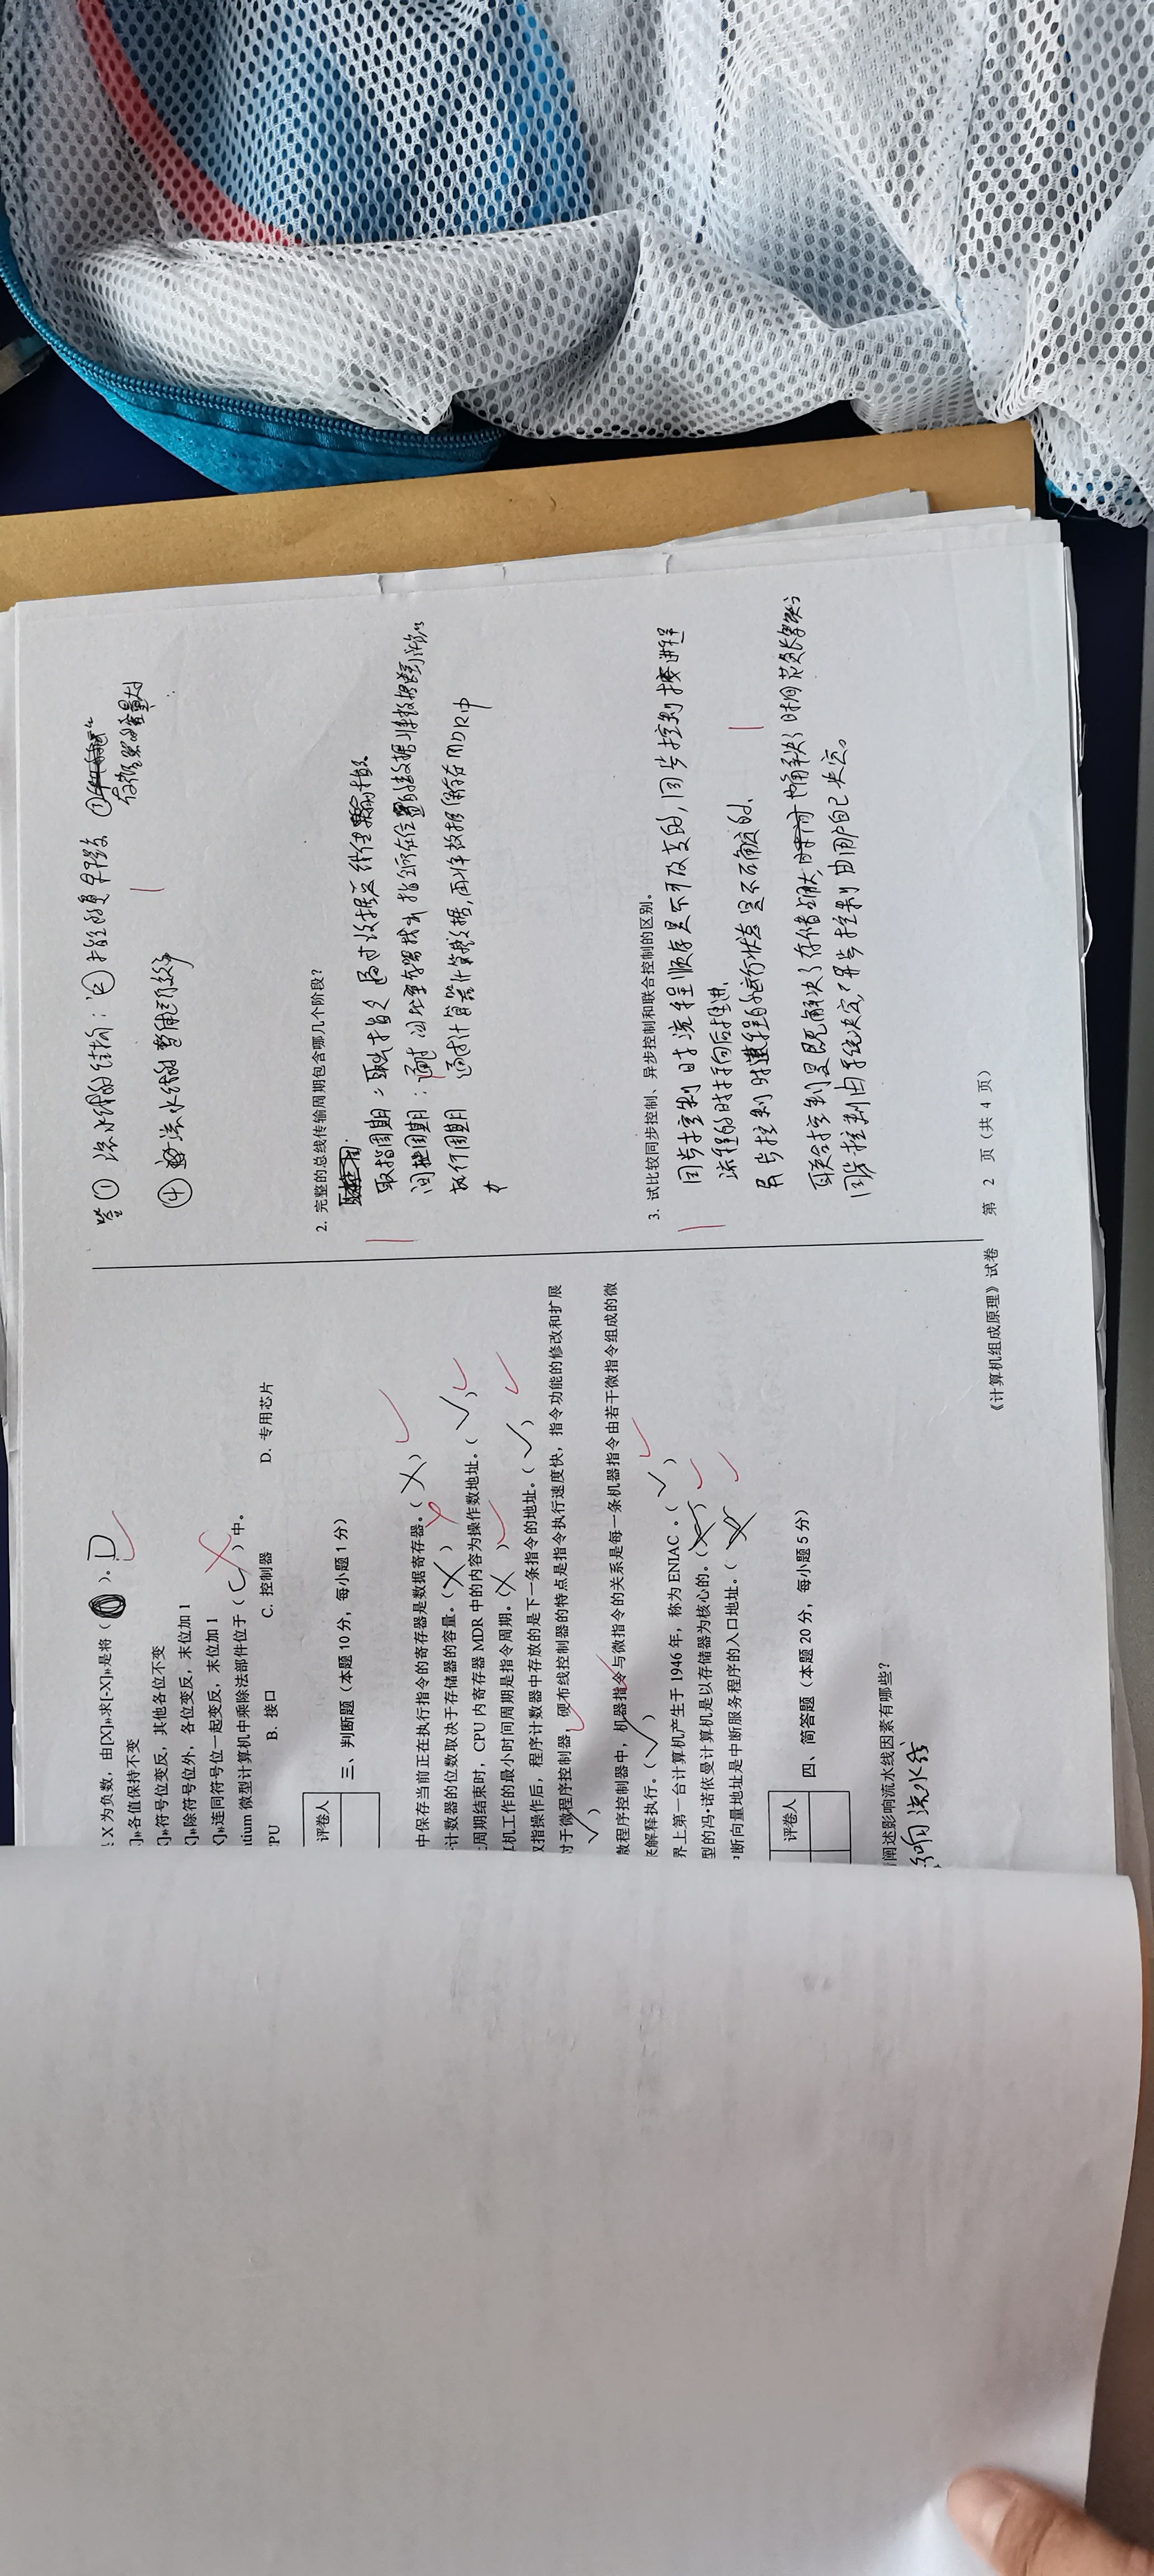 X 为负数，由[X]补求[-X]补是将（ ）。D
X]补各值保持不变
X]补符号位变反，其他各位不变
X]补除符号位外，各位变反，末位加 1
X]补连同符号位一起变反，末位加 1
ntium 微型计算机中乘除法部件位于（ C ）中。
PU B. 接口 C. 控制器 D. 专用芯片
评卷人
三、判断题（本题 10 分，每小题 1 分）
中保存当前正在执行指令的寄存器是数据寄存器。（ X ）
计数器的位数取决于存储器的容量。（ X ）
周期结束时，CPU 内寄存器 MDR 中的内容为操作数地址。（ ✓ ）
机工作的最小时间周期是指令周期。（ X ）
取指操作后，程序计数器中存放的是下一条指令的地址。（ ✓ ）
对于微程序控制器，硬布线控制器的特点是指令执行速度快，指令功能的修改和扩展
✓ ）
微程序控制器中，机器指令与微指令的关系是每一条机器指令由若干微指令组成的微
来解释执行。（ ✓ ）
界上第一台计算机产生于 1946 年，称为 ENIAC 。（ ✓ ）
型的冯•诺依曼计算机是以存储器为核心的。（ ）
中断向量地址是中断服务程序的入口地址。（
评卷人
四、简答题（本题 20 分，每小题 5 分）
阐述影响流水线因素有哪些？
影响流水线
答 ① 流水线的结构； ② 指令的复杂程度
存储器的容量大小
④ 流水线的整体运行效率
2. 完整的总线传输周期包含哪几个阶段？
取指周期：取出指令 通过数据总线传输
间址周期：通过 找出指令所在位置的 数据 将数据送到
执行周期 通过计算器计算数据，再将数据保存在MDR中
3. 试比较同步控制、异步控制和联合控制的区别。
同步控制时流程顺序是不可改变的，同步控制 按进程
流程的时 向后推进.
异步控制时进程的运行状态是不可确定的.
联合控制是既解决了存储占用大, 也解决了时间花费长
同步控制由系统决定，异步控制由用户自己决定。
《计算机组成原理》试卷 第 2 页（共 4 页）